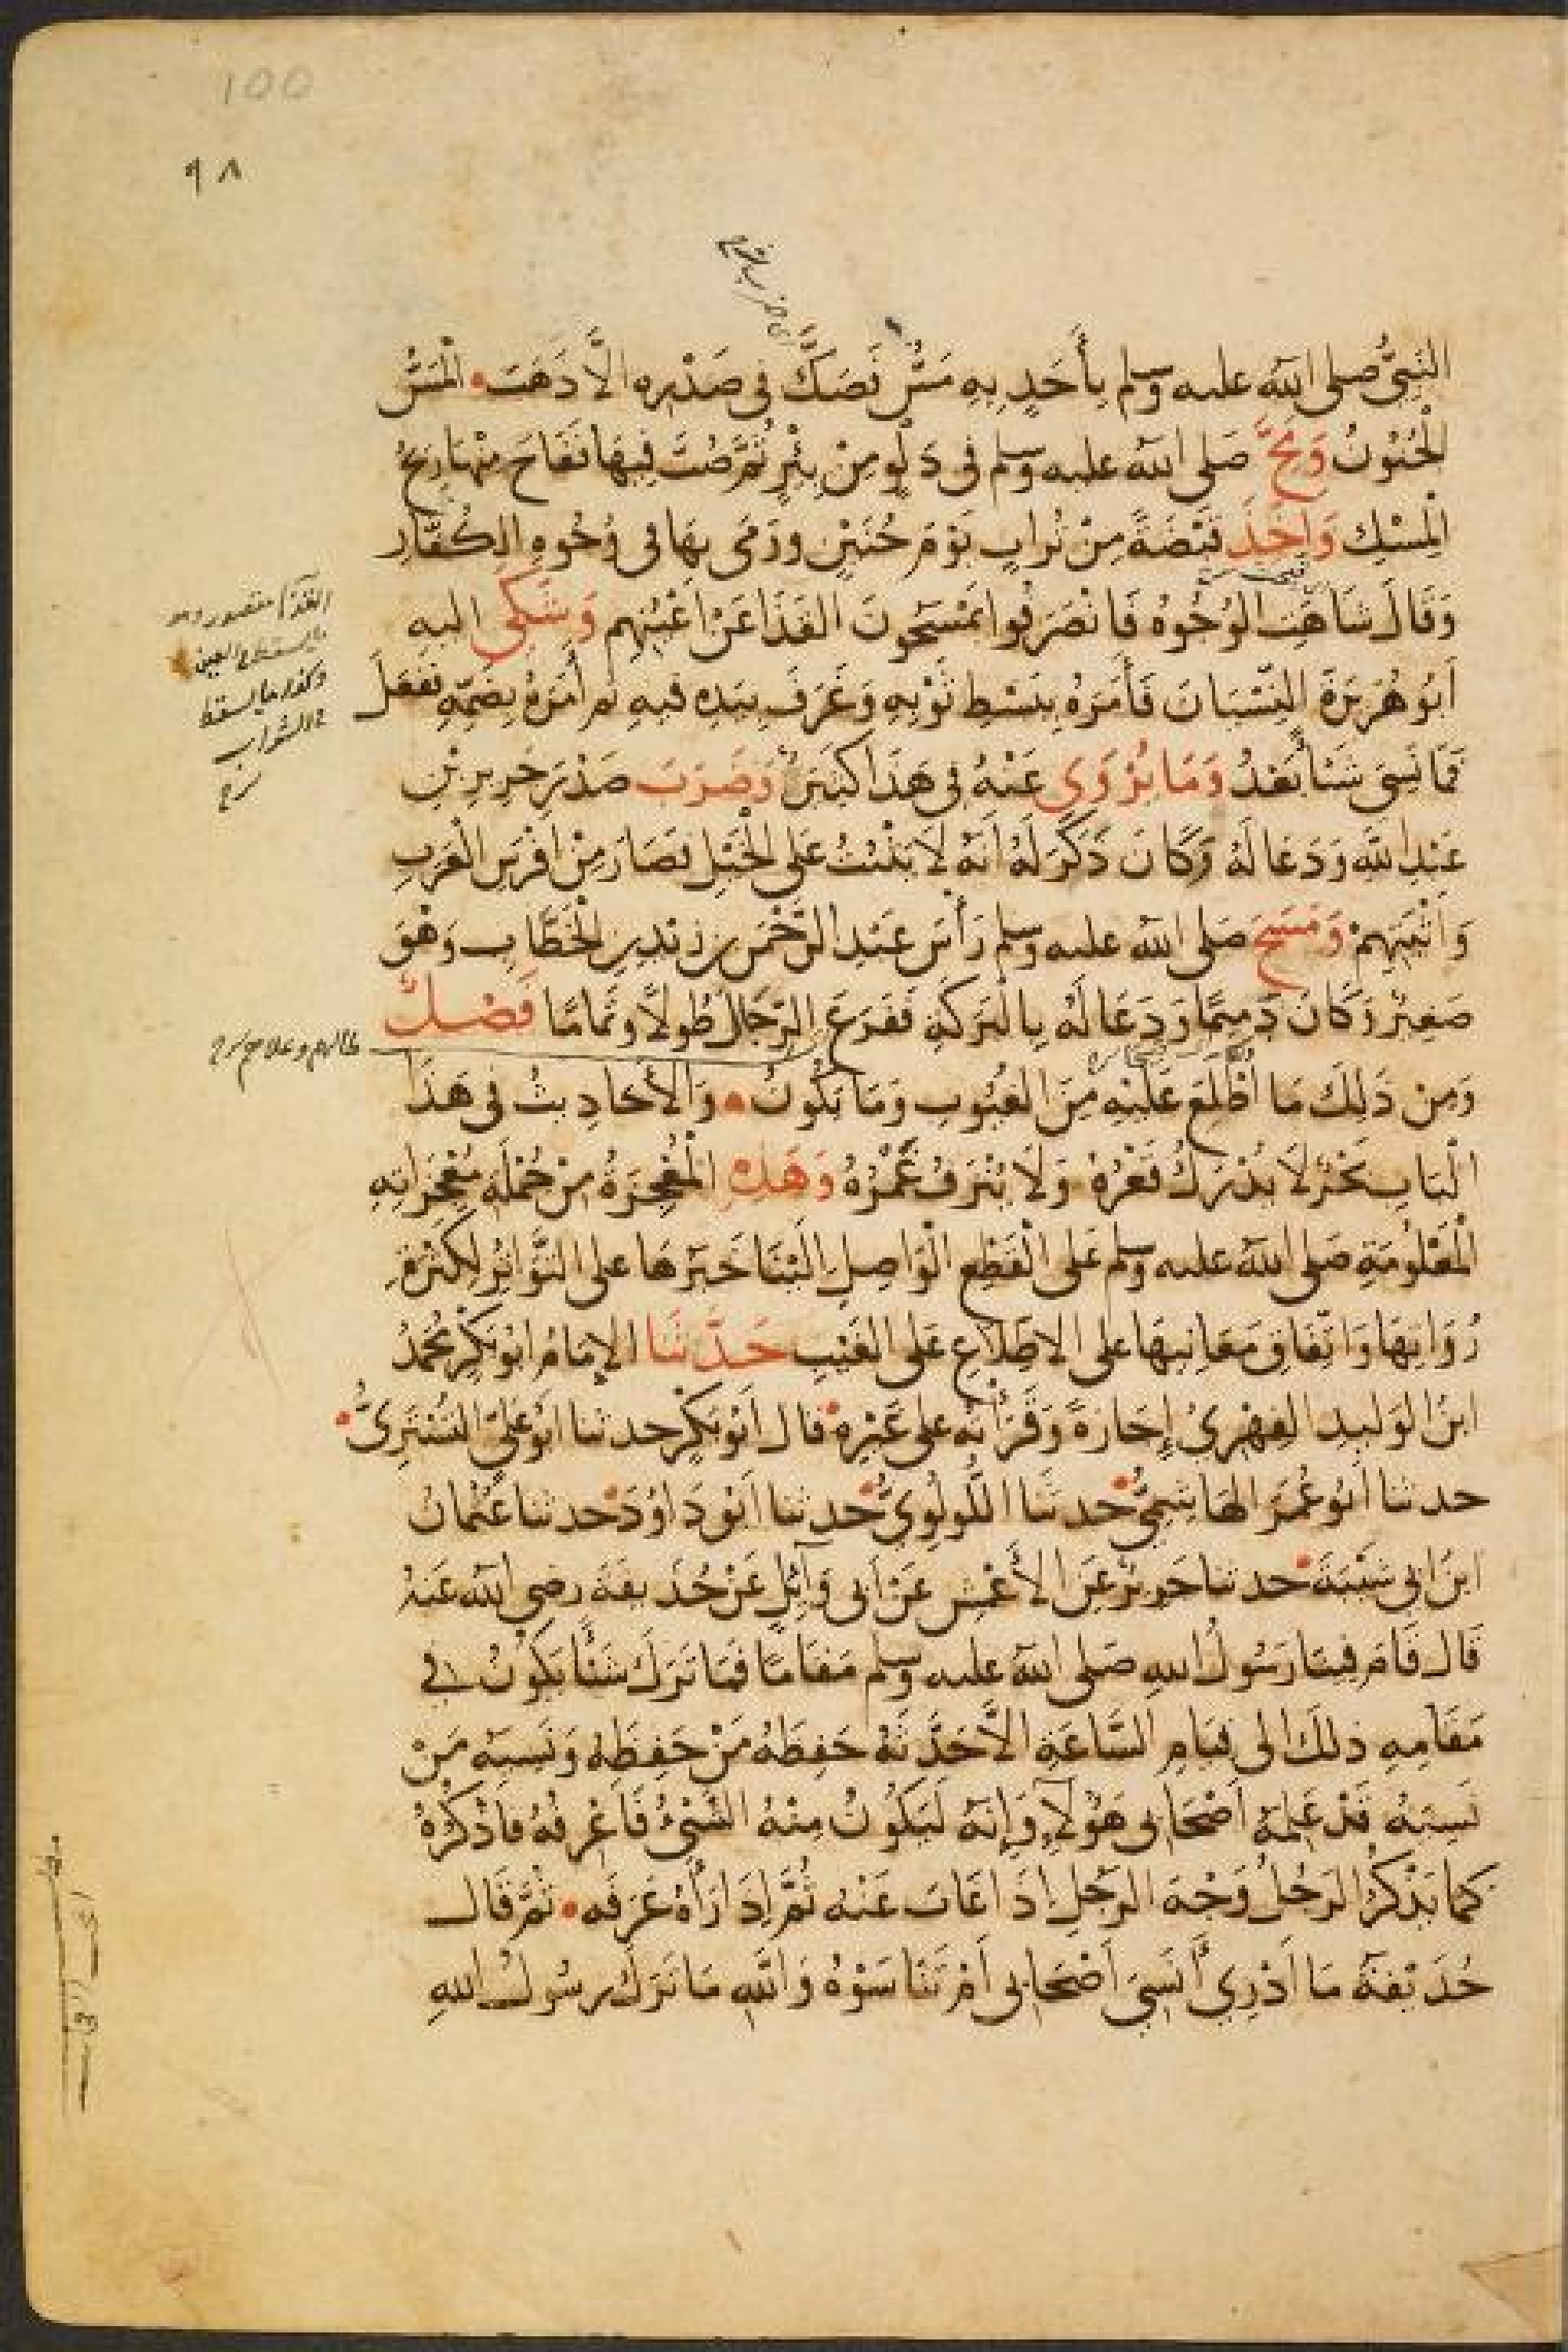 100
٩٨
النَّبِيُّ صلى الله عليه وسلم بِأَحَدٍ بِهِ مَسٌّ فَصَكَّ فى صَدْرِهِ الَّا ذَهَبَ • الْمَسُّ
الْجُنُونُ وَمَجَّ صَلى الله عليه وسلم فى دَلْوٍ مِنْ بِئْرٍ ثُمَّ صُبَّ فِيهَا فَفَاحَ مِنْهَا رِيحُ
الْمِسْكِ وَاَخَذَ قَبْضَةً مِنْ تُرابٍ يَوْمَ حُنَيْنٍ ورَمَى بِهَا فى وُجُوهِ الكُفَّارِ
وَقَالَ شَاهَتِ الوُجُوهُ فَانْصَرَفُوا يَمْسَحُونَ القَذَا عَنْ اَعْيُنِهِم وَشَكَى اليهِ
اَبُو هُرَيرَةَ النِّسْيَانَ فَأَمَرَهُ بِبَسْطِ ثَوْبِهِ وَغَرَفَ بِيَدِهِ فيهِ ثم أمَرَهُ بِضَمِّهِ فَفَعَلَ
فَمَا نَسِىَ شَيْئاً بَعْدُ وَمَا يُرْوَى عَنْهُ فِى هَذَا كَثِيرٌ وَضَرَبَ صَدْرَ جَرِيرِ بْنِ
عَبْدِ اللهِ وَدَعَا لَهُ وَكَانَ ذَكَرَ لَهُ اَنَّهُ لاَ يَثْبُتُ عَلى الْخَيْلِ فصَارَ مِنْ اَفْرَسِ الْعَرَبِ
وَاَثْبَتِهِمْ وَمَسَحَ صَلى الله عليه وسلم رَأْسَ عَبْدِ الرَّحْمَنِ بن زيْدِ بنِ الْخَطَّابِ وَهْوَ
صَغِيرٌ وَكَانَ دَمِيمًا وَدَعَا لَهُ بِالْبَرَكَةِ فَفَرَعَ الرِّجَالَ طُولاً وتَمامًا فَصْلٌ
وَمِنْ ذَلِكَ مَا اُطْلِعَ عَلَيْهِ مِنَ الغيُوبِ وَمَا يَكُونُ • وَالأَحَادِيثُ فى هَذَا
الْبَابِ بَحْرٌ لاَ يُدْرَكُ قَعْرُهُ وَلاَ يُنْزَفُ غَمْرُهُ وَهَذِهِ الْمُعْجِزَةُ مِنْ جُمْلَةِ مُعْجِزَاتِهِ
الْمَعْلُومَةِ صَلى الله عليه وسلم عَلَى الْقَطْعِ الْوَاصِلِ اِلَيْنَا خَبَرُهَا على التَّوَاتُرِ لِكَثْرَةِ
رُوَاتِهَا وَاتِّفَاقِ مَعَانِيهَا على الاِطِّلاَعِ عَلى الغَيْبِ حَدَّثَنا الاِمَامُ اَبُو بَكْرٍ مُحَمَّدُ
ابنُ الوَلِيدِ الفِهْرِيُّ إِجَازَةً وَقَرَأْتُهُ على غَيْرِهِ • قال اَبُو بَكْرٍ حدثنا اَبُو عَلِيٍّ التُّسْتَرِىُّ •
حدثنا اَبُو عُمَرَ الهَاشِمِيُّ • حدثَنا اللُّولُوِيُّ • حدثنا اَبُو دَاوُدَ • حدثنا عُثْمانُ
ابنُ اَبِى شَيْبَةَ • حدثنا جَرِيرٌ عَنِ الأَعْمَشِ عَنْ اَبِى وَآئِلٍ عَنْ حُذَيفَةَ رضى الله عَنهُ
قَالَ قَامَ فِينَا رَسُولُ اللهِ صَلى الله عليه وسلم مَقَامًا فَمَا تَرَكَ شَيْئًا يَكُونُ فى
مَقَامِهِ ذلكَ الى قيَامِ السَّاعَةِ الاَّ حَدَّثَهُ حَفِظَهُ مَنْ حَفِظَهُ وَنَسِيَهُ مَنْ
نَسِيَهُ قَدْ عَلِمَهُ اَصْحَابِى هَؤُلآءِ وَإِنَّهُ لَيَكُونُ مِنْهُ الشَّىْءُ فَاَعْرِفُهُ فَاَذْكُرُهُ
كَما يَذْكُرُ الرَجُلُ وَجْهَ الرَجُلِ اِذَا غَابَ عَنْهُ ثُمَّ اِذَا رَآهُ عَرَفَه • ثُمَّ قَالَ
حُذَيْفَةُ مَا اَدْرِي أَنَسِيَ اَصْحَابِى اَمْ تَنَاسَوْهُ وَاللهِ مَا تَرَكَ رسُولُ اللهِ
القذا مقصور وهو
ما يسقط فى العين
وكذا ما يسقط
فى الشراب
طالهم وعلاهم